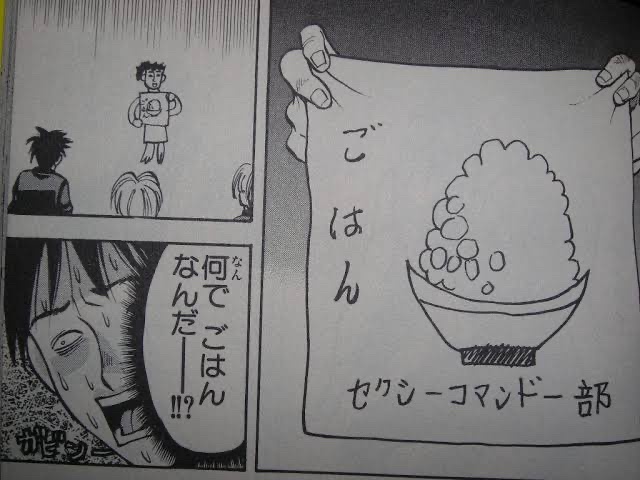 ごはん
セクシーコマンドー部
何で ごはん
なんだ——!!?
なん